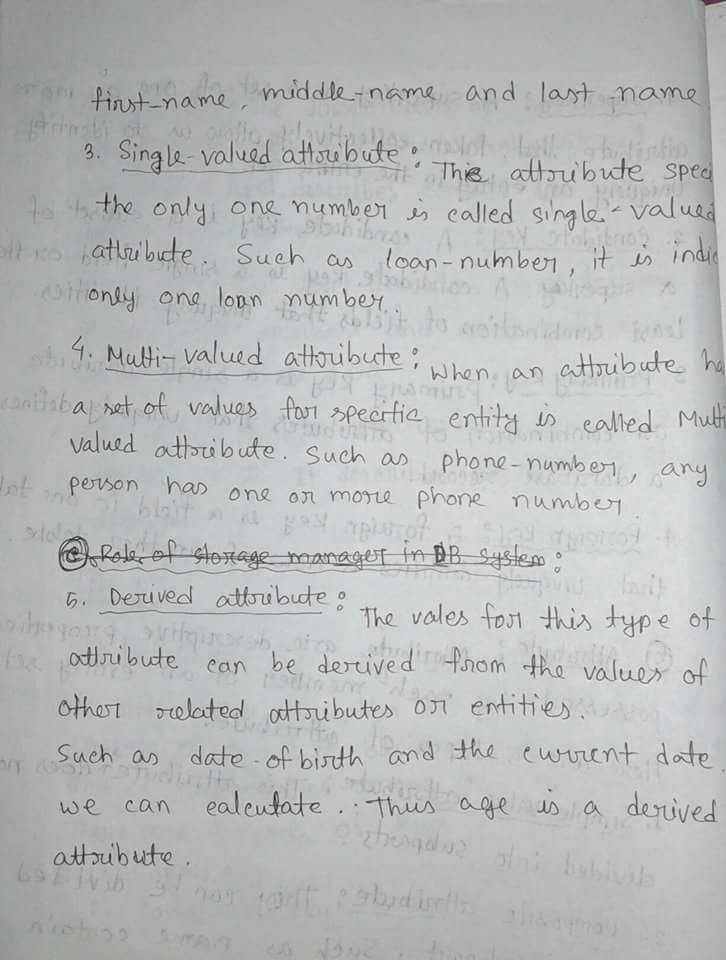 first-name, middle-name and last name
3. Single-valued attribute: This attribute speci
the only one number is called single-valued
attribute. Such as loan-number, it is indic
only one loan number.
4. Multi-valued attribute: When an attribute ha
a set of values for specific entity is called Multi
valued attribute. Such as phone-number, any
person has one or more phone number.
e. Role of storage manager in DB system:
5. Derived attribute: The vales for this type of
attribute can be derived from the values of
other related attributes or entities.
Such as date-of birth and the current date.
we can calcutate.. Thus age is a derived
attribute.